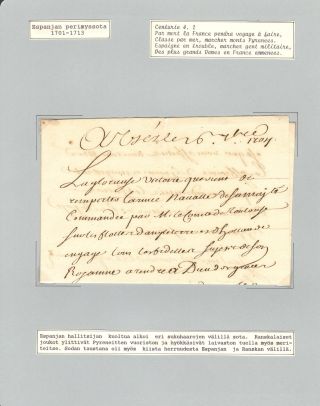 Espanjan perimyssota
1701-1713
Centurie 4. 2
Par mort la France prendra voyage à faire,
Classe par mer, marcher monts Pyrenees.
Espaigne en trouble, marcher gent militaire,
Des plus grands Dames en France emmenees.
A Versailles 6 7bre 1704
La glorieuse victoire que vient de
remporter l'armée Navalle de sa Majté
Commandée par M. le Comte de Toulouse
sur les flottes d'angleterre et d'hollande
engage tous les fidelles sujets de son
Royaume a rendre a Dieu des graces
Espanjan hallitsijan kuoltua alkoi eri sukuhaarojen välillä sota. Ranskalaiset
joukot ylittivät Pyreneitten vuoriston ja hyökkäsivät laivaston tuella myös meri-
teitse. Sodan taustana oli myös kiista herruudesta Espanjan ja Ranskan välillä.